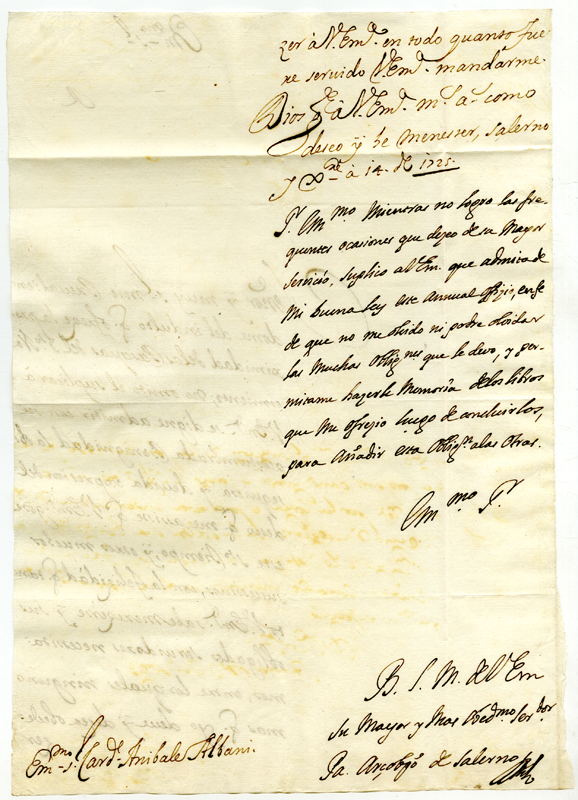 zer à V. Em.ᵃ en todo quanto fue
re servido V. Em.ᵃ mandarme.
Dios g.ᵉ à V. Em.ᵃ m.ˢ a.ˢ como
deseo y he menester, Salerno
y à 14. de 1725.
P.ʳ Em.ᵐᵒ Mientras no logro las fre
quentes ocasiones que deseo de su Mayor
servicio, suplico al Em. que admita de
Mi buena ley este Annual ofizio, en fe
de que no me olvido ni podre olvidar
las Muchas oblig.ⁿᵉˢ que le devo, y per-
mitame hazerle Memoria de los libros
que Me ofrezio luego de concluirlos,
para Añadir esta oblig.ⁿ a las otras.
Em.ᵐᵒ P.ʳ
B. S. M. de V. Em
su Mayor y Mas obed.ᵐᵒ ser.ᵈᵒʳ
Pa. Arçobpo de Salerno
Em.ᵐᵒ S.ʳ Card.ˡ Anibale Albani.